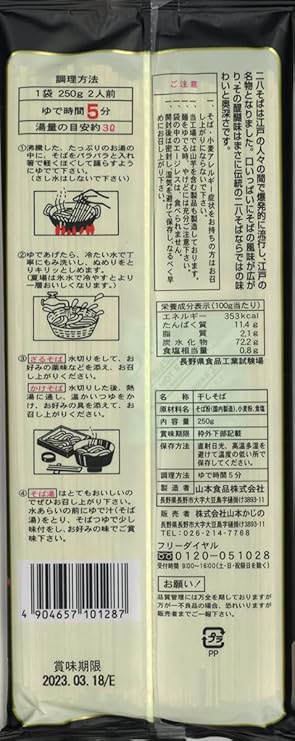 調理方法
1袋 250g 2人前
ゆで時間5分
湯量の目安約3ℓ
①沸騰した、たっぷりのお湯の
中に、そばをパラパラと入れ
箸で軽くほぐして踊らすよう
にゆでて下さい。
（さし水はしないで下さい）
②ゆであげたら、冷たい水で丁
寧にもみ洗いし、ぬめりをと
りキリッとしめます。
（夏場は氷水で冷やすとより
一層おいしくなります。）
③ざるそば 水切りをして、お
好みの薬味などを添え、お召
し上がりください。
かけそば 水切りした後、熱
湯に通し、温かいつゆをか
け、お好みの具を添えて、
お召し上がりください。
④そば湯 はとてもおいしいの
でぜひお召し上がり下さい。
水あらいの前にゆで汁（そば
湯）をとり、そばつゆで少し
味付をし、お好みの味でご賞
味下さい。
4 904657 101287
賞味期限
2023.03.18/E
二八そばは江戸の人々の間で爆発的に流行し、江戸の
名物となりました。口いっぱいにそばの風味が広が
り、その醍醐味はまさに伝統の二八そばならではの味
わいと奥深さです。
ご注意
そば・小麦アレルギー症状をお持ちの方はお召
し上がりにならないで下さい。
当工場では山芋を含む製品も製造しております。
麺をゆでる時は、やけどには充分ご注意下さい。
袋の中のエージレスは、食べられません。
開封後は密封し湿気を避けて保存しなるべく早
めにお召し上がり下さい。
栄養成分表示（100g当たり）
エネルギー 353kcal
たんぱく質 11.4 g
脂質 2.1 g
炭水化物 72.2 g
食塩相当量 0.8 g
長野県食品工業試験場
名称 干しそば
原材料名 そば粉（国内製造）、小麦粉、食塩
内容量 250g
賞味期限 枠外下部記載
保存方法 直射日光、高温多湿を
避けて温度の低い所で
保存してください。
調理方法 ゆで時間 5分
製造者 山本食品株式会社
長野県長野市大字大豆島字中之島3893-11
販売者 株式会社山本かじの
長野県長野市大字大豆島字中之島3893-11
TEL. 026-214-7768
フリーダイヤル
0120-051028
受付時間 9:00〜16:00（土・日・祝日を除く）
お願い！
品質管理には万全を期しておりますが
万が一不良品の場合、恐れいりますが
販売者までご一報下さい。
プラ
PP